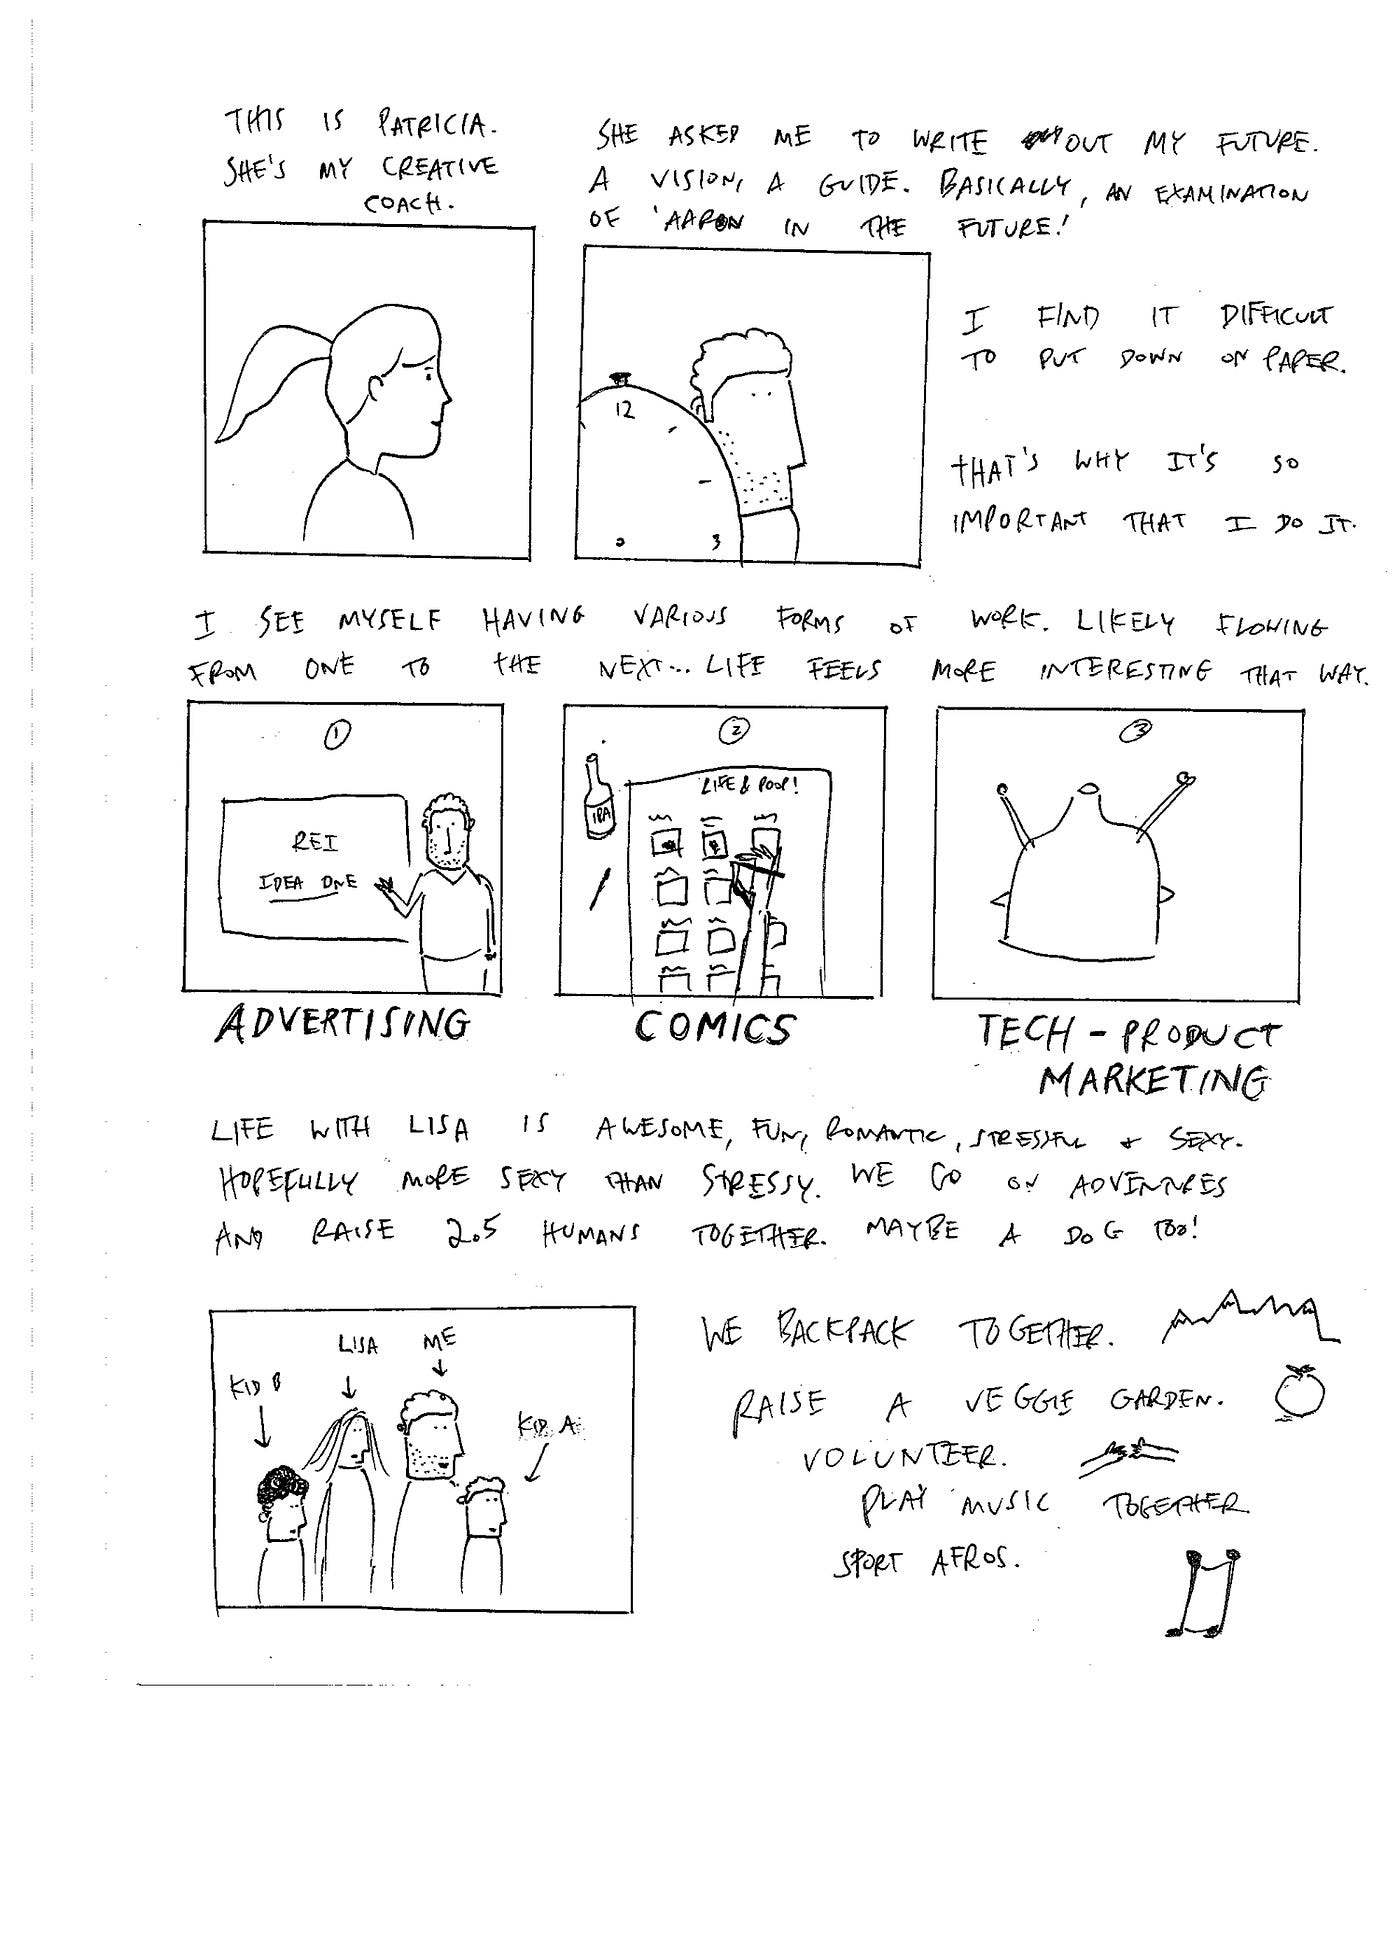 THIS IS PATRICIA.
SHE'S MY CREATIVE
COACH.
SHE ASKED ME TO WRITE OUT MY FUTURE.
A VISION, A GUIDE. BASICALLY, AN EXAMINATION
OF 'AARON IN THE FUTURE.'
12
3
I FIND IT DIFFICULT
TO PUT DOWN ON PAPER.
THAT'S WHY IT'S SO
IMPORTANT THAT I DO IT.
I SEE MYSELF HAVING VARIOUS FORMS OF WORK. LIKELY FLOWING
FROM ONE TO THE NEXT... LIFE FEELS MORE INTERESTING THAT WAY.
1
REI
IDEA ONE
ADVERTISING
2
LIFE & POOP!
IPA
COMICS
3
TECH - PRODUCT
MARKETING
LIFE WITH LISA IS AWESOME, FUN, ROMANTIC, STRESSFUL + SEXY.
HOPEFULLY MORE SEXY THAN STRESSY. WE GO ON ADVENTURES
AND RAISE 2.5 HUMANS TOGETHER. MAYBE A DOG TOO!
KID B
LISA
ME
KID A
WE BACKPACK TOGETHER.
RAISE A VEGGIE GARDEN.
VOLUNTEER.
PLAY MUSIC TOGETHER
SPORT AFROS.